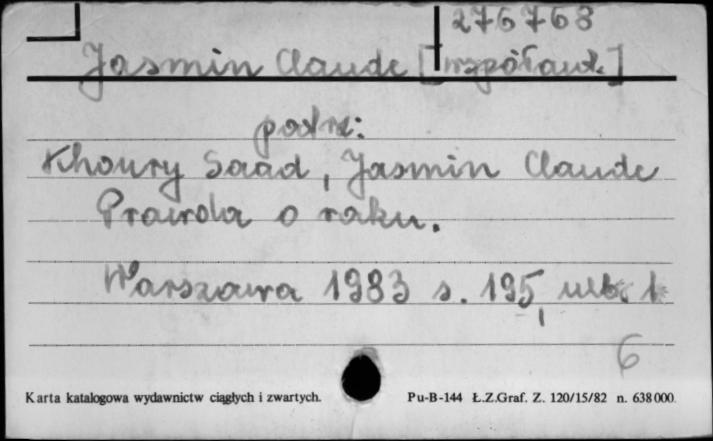 276768
Jasmin Claude [współaut.]
patrz:
Khoury Saad, Jasmin Claude
Prawda o raku.
Warszawa 1983 s. 195, nlb. 1
6
Karta katalogowa wydawnictw ciągłych i zwartych. Pu-B-144 Ł.Z.Graf. Z. 120/15/82 n. 638000.